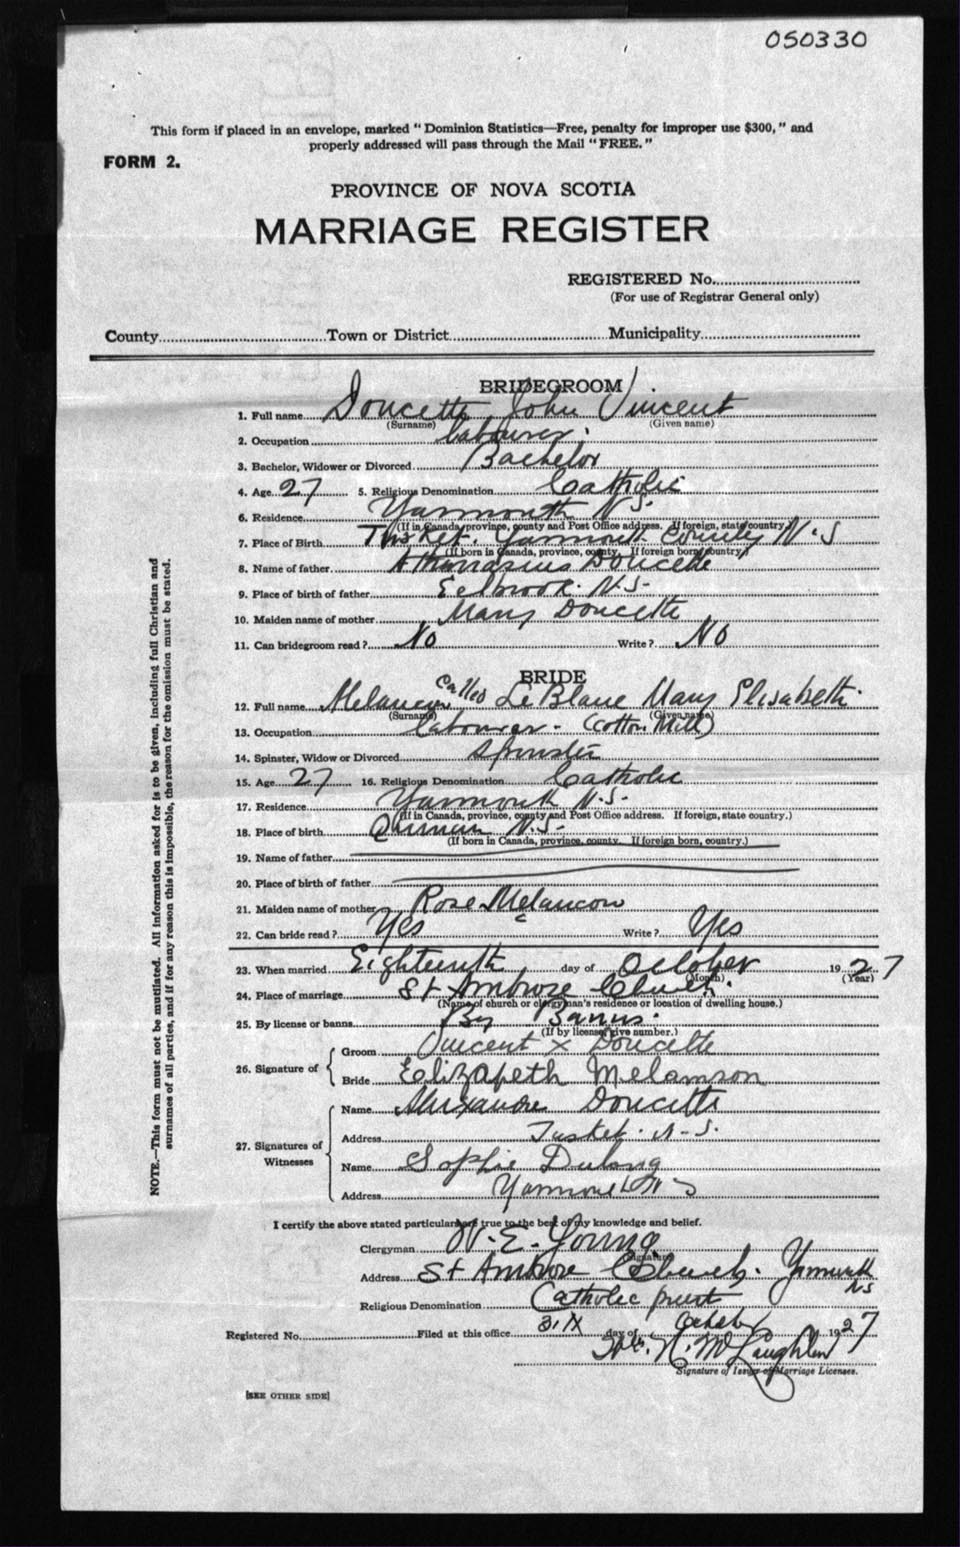 050330
This form if placed in an envelope, marked "Dominion Statistics—Free, penalty for improper use $300," and
properly addressed will pass through the Mail "FREE."
FORM 2.
PROVINCE OF NOVA SCOTIA
MARRIAGE REGISTER
REGISTERED No.
(For use of Registrar General only)
County Town or District Municipality
BRIDEGROOM
1. Full name Doucette John Vincent
(Surname) (Given name)
2. Occupation labourer.
3. Bachelor, Widower or Divorced Bachelor
4. Age 27 5. Religious Denomination Catholic
6. Residence Yarmouth N.S.
(If in Canada, province, county and Post Office address. If foreign, state country.)
7. Place of Birth Tusket. Yarmouth County N.S
(If born in Canada, province, county. If foreign born, country.)
8. Name of father Athanasius Doucette
9. Place of birth of father Eelbrook. N.S.
10. Maiden name of mother Mary Doucette
11. Can bridegroom read? No Write? No
BRIDE
12. Full name Melancon Called LeBlanc Mary Elisabeth.
(Surname) (Given name)
13. Occupation labourer. (Cotton Mill)
14. Spinster, Widow or Divorced Spinster
15. Age 27 16. Religious Denomination Catholic
17. Residence Yarmouth N.S.
(If in Canada, province, county and Post Office address. If foreign, state country.)
18. Place of birth Quinan N.S.
(If born in Canada, province, county. If foreign born, country.)
19. Name of father
20. Place of birth of father
21. Maiden name of mother Rose Melancon
22. Can bride read? Yes Write? Yes
23. When married Eighteenth day of October 1927
(Month) (Year)
24. Place of marriage St Ambrose Church.
(Name of church or clergyman's residence or location of dwelling house.)
25. By license or banns By Banns.
(If by license, give number.)
26. Signature of Groom Vincent X Doucette
Bride Elizapeth Melamson
27. Signatures of Witnesses Name Alexandre Doucette
Address Tusket. N.S.
Name Sophie Dulong
Address Yarmouth N S
I certify the above stated particulars are true to the best of my knowledge and belief.
Clergyman W. E. Young
(Signature)
Address St Ambrose Church. Yarmouth NS
Religious Denomination Catholic priest
Registered No. Filed at this office 31 day of October 1927
N. McLaughlin
Signature of Issuer of Marriage Licenses.
[SEE OTHER SIDE]
NOTE.—This form must not be mutilated. All information asked for is to be given, including full Christian and
surnames of all parties, and if for any reason this is impossible, the reason for the omission must be stated.